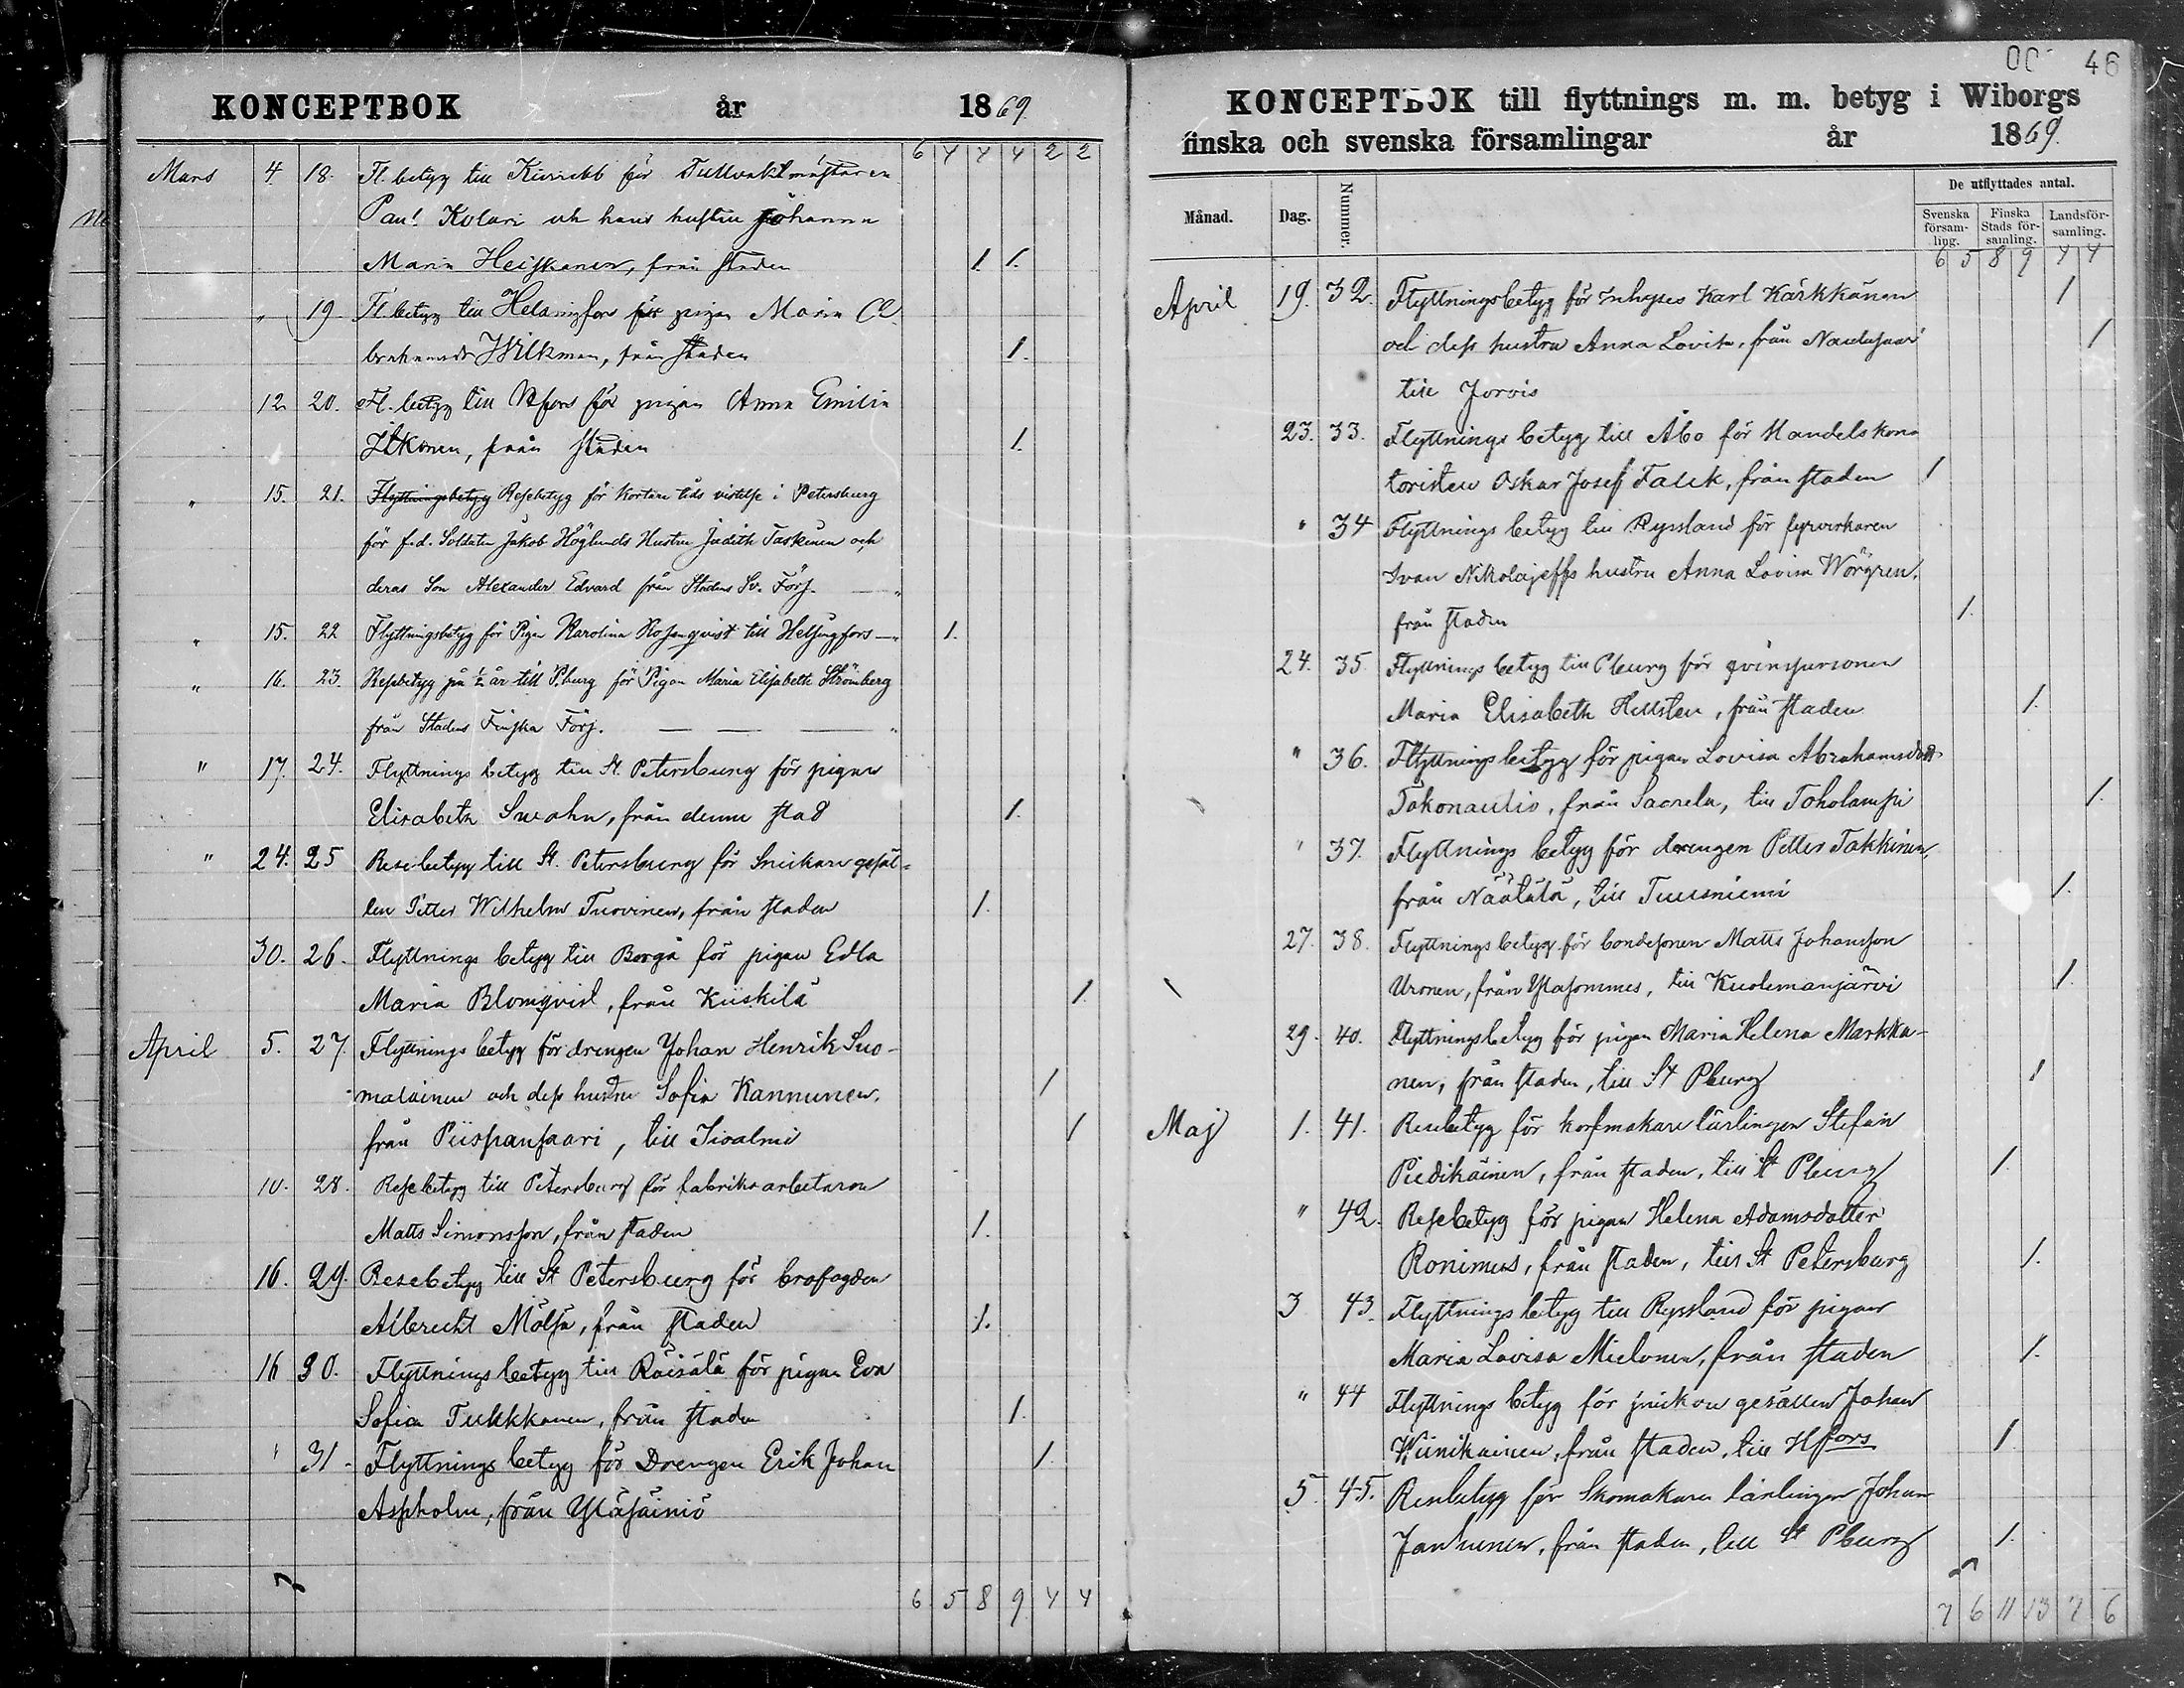 KONCEPTBOK år 1869.
6 4 4 4 2 2
Mars 4. 18. Fl. betyg till Kivinebb för Tullvaktmästaren
Paul Kolari och hans hustru Johanna
Maria Heiskanen, från staden 1. 1.
" 19 Fl. betyg till Helsingfors för pigan Maria A
brahamsdr Wilkman, från staden 1.
12 20. Fl. betyg till Hfors för pigan Anna Emilia
Itkonen, från staden 1.
" 15. 21. Flyttningsbetyg Resebetyg för kortare tids vistelse i Petersburg
för f.d. Soldaten Jakob Höglunds Hustru Judith Taskinen och
deras Son Alexander Edvard från Stadens Sv. Förs. — "
" 15. 22 Flyttningsbetyg för Pigan Karolina Rosenqvist till Helsingfors — 1.
" 16. 23. Resebetyg på ½ år till P.burg för Pigan Maria Elisabeth Strömberg
från Stadens Finska Förs. — — — "
" 17. 24. Flyttnings betyg till St. Petersburg för pigan
Elisabeth Swahn, från denna stad 1.
" 24. 25 Resebetyg till St. Petersburg för Snickare gesäl=
len Petter Wilhelm Tuovinen, från staden 1.
30. 26. Flyttnings betyg till Borgå för pigan Edla
Maria Blomqvist, från Kiiskilä 1.
April 5. 27. Flyttnings betyg för drengen Johan Henrik Suo-
malainen och dess hustru Sofia Kannunen, 1
från Piispansaari, till Iisalmi 1
10. 28. Resebetyg till Petersburg för fabriks arbetaren
Matts Simonsson, från staden 1.
16. 29. Resebetyg till St Petersburg för brofogden
Albrecht Mölsä, från staden 1.
16 30. Flyttnings betyg till Räisälä för pigan Eva
Sofia Tukkkanen, från staden 1.
" 31. Flyttnings betyg för Drengen Erik Johan 1.
Aspholm, från Yläsäiniö
6 5 8 9 4 4
46
KONCEPTBOK till flyttnings m. m. betyg i Wiborgs
finska och svenska församlingar år 1869.
Månad. Dag. Nummer. De utflyttades antal.
Svenska församling. Finska Stads församling. Landsförsamling.
6 5 8 9 4 4
April 19. 32. Flyttningsbetyg för Inhyses Karl Kärkkänen 1
och dess hustru Anna Lovisa, från Nautsaari 1
till Jorois
23. 33. Flyttnings betyg till Åbo för Handelskon
toristen Oskar Josef Falck, från staden 1
" 34 Flyttnings betyg till Ryssland för fyrverkaren
Ivan Nikolajeffs hustru Anna Lovisa Wörgren,
från staden 1.
24. 35. Flyttnings betyg till Pburg för qvinspersonen
Maria Elisabeth Hellsten, från staden 1.
" 36. Flyttnings betyg för pigan Lovisa Abrahamsdott
från Saarela, till Toholampi 1.
" 37. Flyttnings betyg för drengen Petter Takkinen,
från Näätälä, till Tuusniemi 1.
27. 38. Flyttnings betyg för bondesonen Matts Johansson
Uronen, från Yläsommee, till Kuolemanjärvi 1.
29. 40. Flyttningsbetyg för pigan Maria Helena Markka-
nen, från staden, till St Pburg 1
Maj 1. 41. Resebetyg för korfmakare lärlingen Stefan
Piedikäinen, från staden, till St Pburg 1.
" 42. Resebetyg för pigan Helena Adamsdotter
Ronimus, från staden, till St Petersburg 1.
3 43. Flyttnings betyg till Ryssland för pigan
Maria Lovisa Mielonen, från staden 1.
" 44 Flyttnings betyg för snickare gesällen Johan
Wiinikainen, från staden, till Hfors 1.
5. 45. Resebetyg för Skomakare lärlingen Johan
Janhunen, från staden, till St Pburg 1.
7 6 11 13 7 6